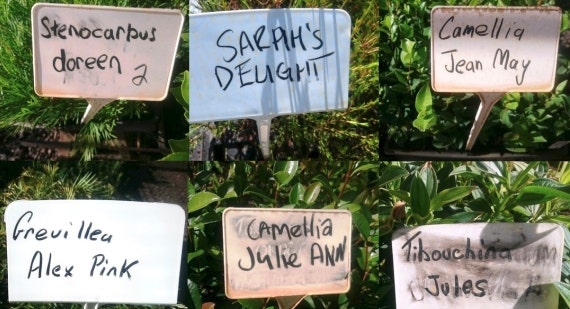 Stenocarbus
doreen 2
SARAH'S
DELIGHT
Camellia
Jean May
Grevillea
Alex Pink
CAMEllIA
Julie ANN
Tibouchina
Jules